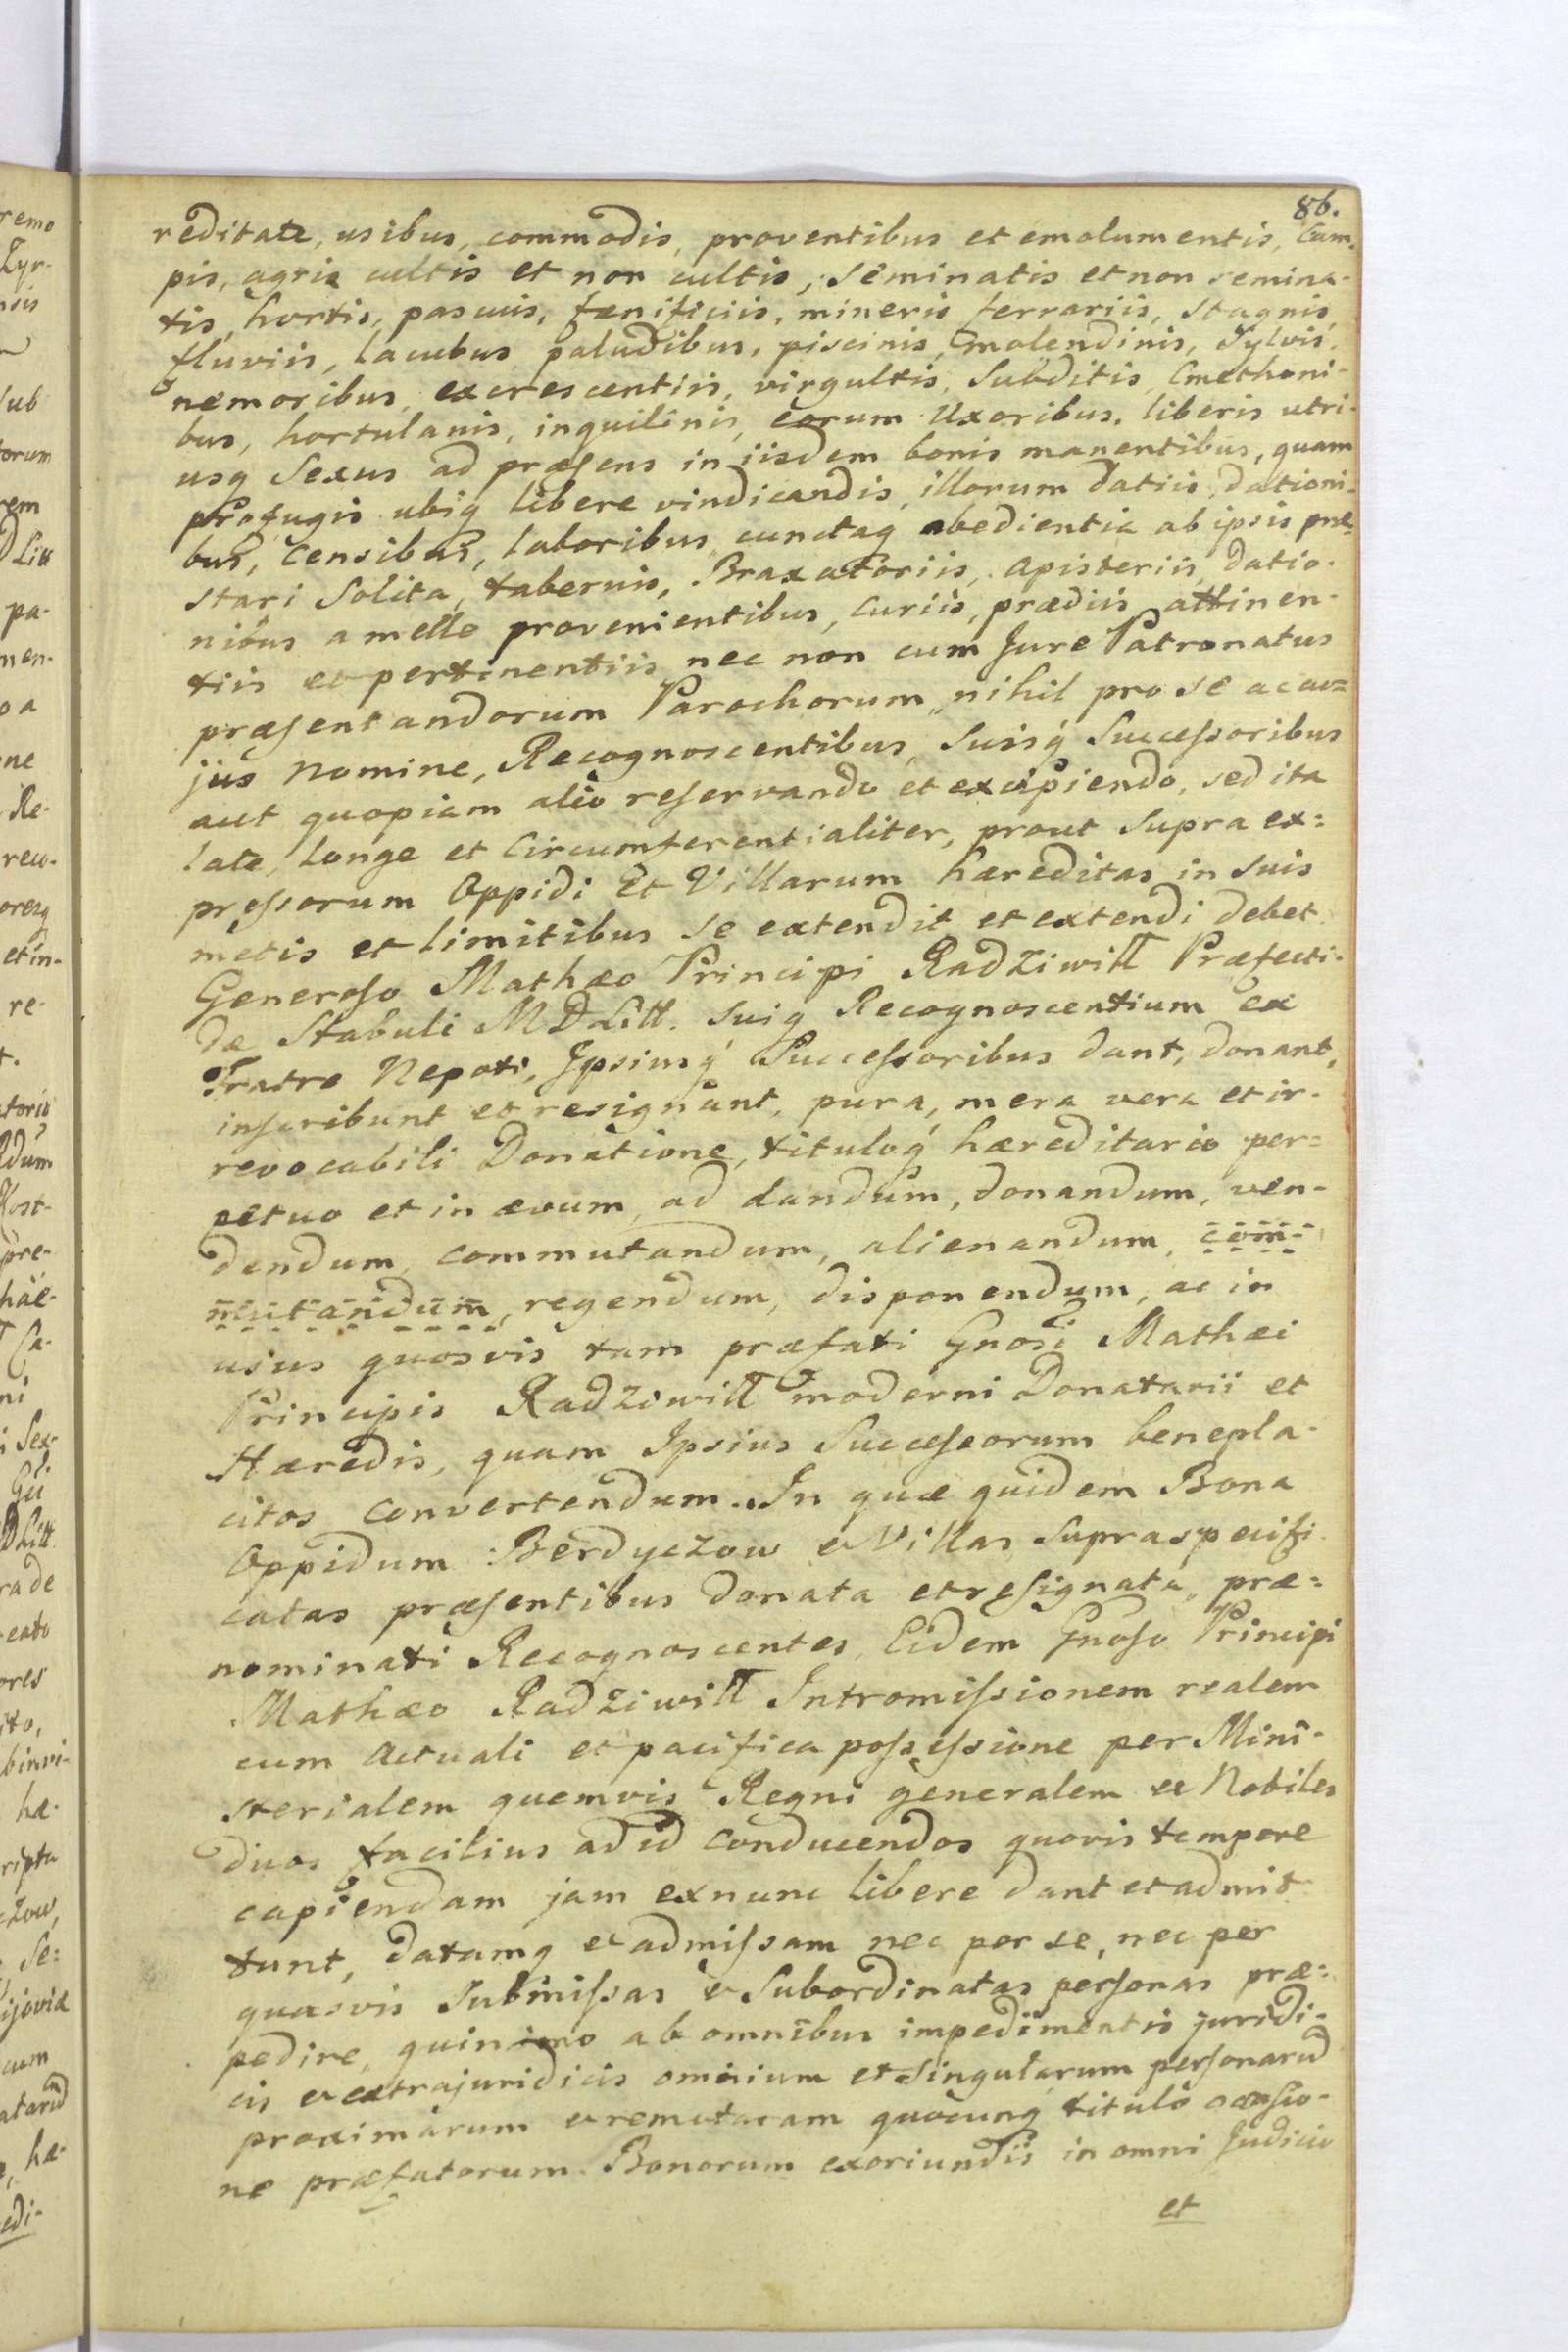 86.
reditate, usibus, commodis, proventibus et emolumentis, Cam-
pis, agris cultis et non cultis, seminatis et non semina-
tis, hortis, pascuis, fænificiis, mineris ferrariis, stagnis,
fluviis, lacubus paludibus, piscinis, molendinis, Sylvis,
nemoribus, excrescentiis, virgultis, Subditis, Cmethoni-
bus, hortulanis, inquilinis, eorum Uxoribus, liberis utri-
usq Sexus ad præsens in iisdem bonis manentibus, quam
profugis ubiq libere vindicandis, illorum datiis, dationi-
bus, Censibus, laboribus, cunctaq obedientia ab ipsis præ-
stari Solita, tabernis, Braxatoriis, Apisteriis, datio-
nibus a melle provenientibus, Curiis, prædiis attinen-
tiis et pertinentiis nec non cum Jure Patronatus
præsentandorum Parochorum, nihil pro se ac cu=
jus Nomine, Recognoscentibus, Suisq Successoribus
aut quopiam alio reservando et excipiendo, sed ita
late, longe et Circumferentialiter, prout Supra ex=
pressorum Oppidi Et Villarum hæreditas in Suis
metis et limitibus se extendit et extendi debet
Generoso Mathæo Principi Radziwiłł Præfecti-
dæ Stabuli M D Litt. Suiq Recognoscentium ex
Fratre Nepoti, Ipsiusq Successoribus dant, donant,
inscribunt et resignant, pura, mera vera et ir-
revocabili Donatione, tituloq hæreditario per=
petuo et in ævum, ad dandum, donandum, ven-
dendum, commutandum, alienandum, com-
mutandum, regendum, disponendum, ac in
usus quosvis tam præfati Gnosi Mathæi
Principis Radziwiłł moderni Donatarii et
Hæredis, quam Ipsius Successorum benepla-
citos convertendum. In quæ quidem Bona
Oppidum Berdyczow et Villas Supraspecifi-
catas præsentibus donata et resignata, præ=
nominati Recognoscentes, Eidem Gnoso Principi
Mathæo Radziwiłł Intromissionem realem
cum Actuali et pacifica possessione per Mini-
sterialem quemvis Regni generalem et Nobiles
duos facilius ad id conducendos quovis tempore
capiendam jam ex nunc libere dant et admit
tunt, datamq et admissam nec per se, nec per
quasvis Submissas et Subordinatas personas præ=
pedire, quinimo ab omnibus impedimentis juridi-
cis et extrajuridicis omnium et Singularum personarum
proximarum et remotarum quocunq titulo occasio-
ne præfatorum Bonorum exoriundis in omni Judicio
et